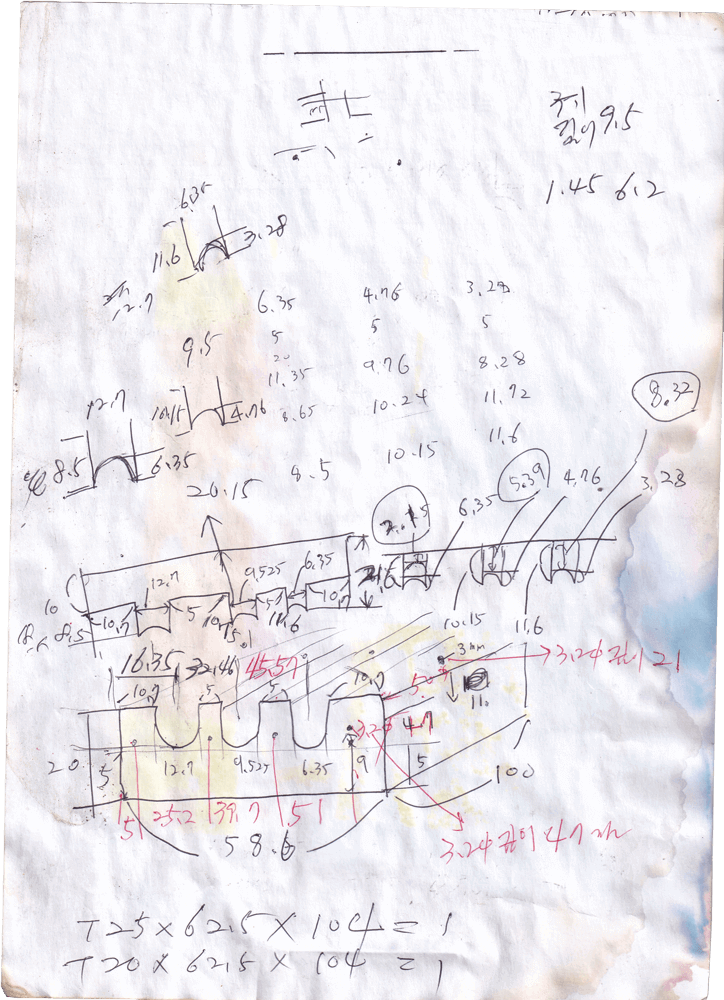 길이 9.5
1.45 6.2
6.35
11.6 3.28
12.7
6.35 4.76 3.28
9.5 5 5 5
20
11.35 9.76 8.28
12.7 10.15 4.76 8.65 10.24 11.72
8.32
8.5 6.35 8.5 10.15 11.6
20.15
2.15 6.35 5.39 4.76 3.28
12.7 9.525 6.35
10 10.7 5 5 10.7
8.5 11.6 10.15 11.6
16.35 32.46 45.57
3mm
3.2Φ 깊이 21
10.7 5 5 10.7 50
11.
3.2Φ 47
20 5 12.7 9.525 6.35 9 5 100
5 25.2 39.7 51
58.6
3.2Φ 깊이 47
T25 × 62.5 × 104 = 1
T20 × 62.5 × 104 = 1